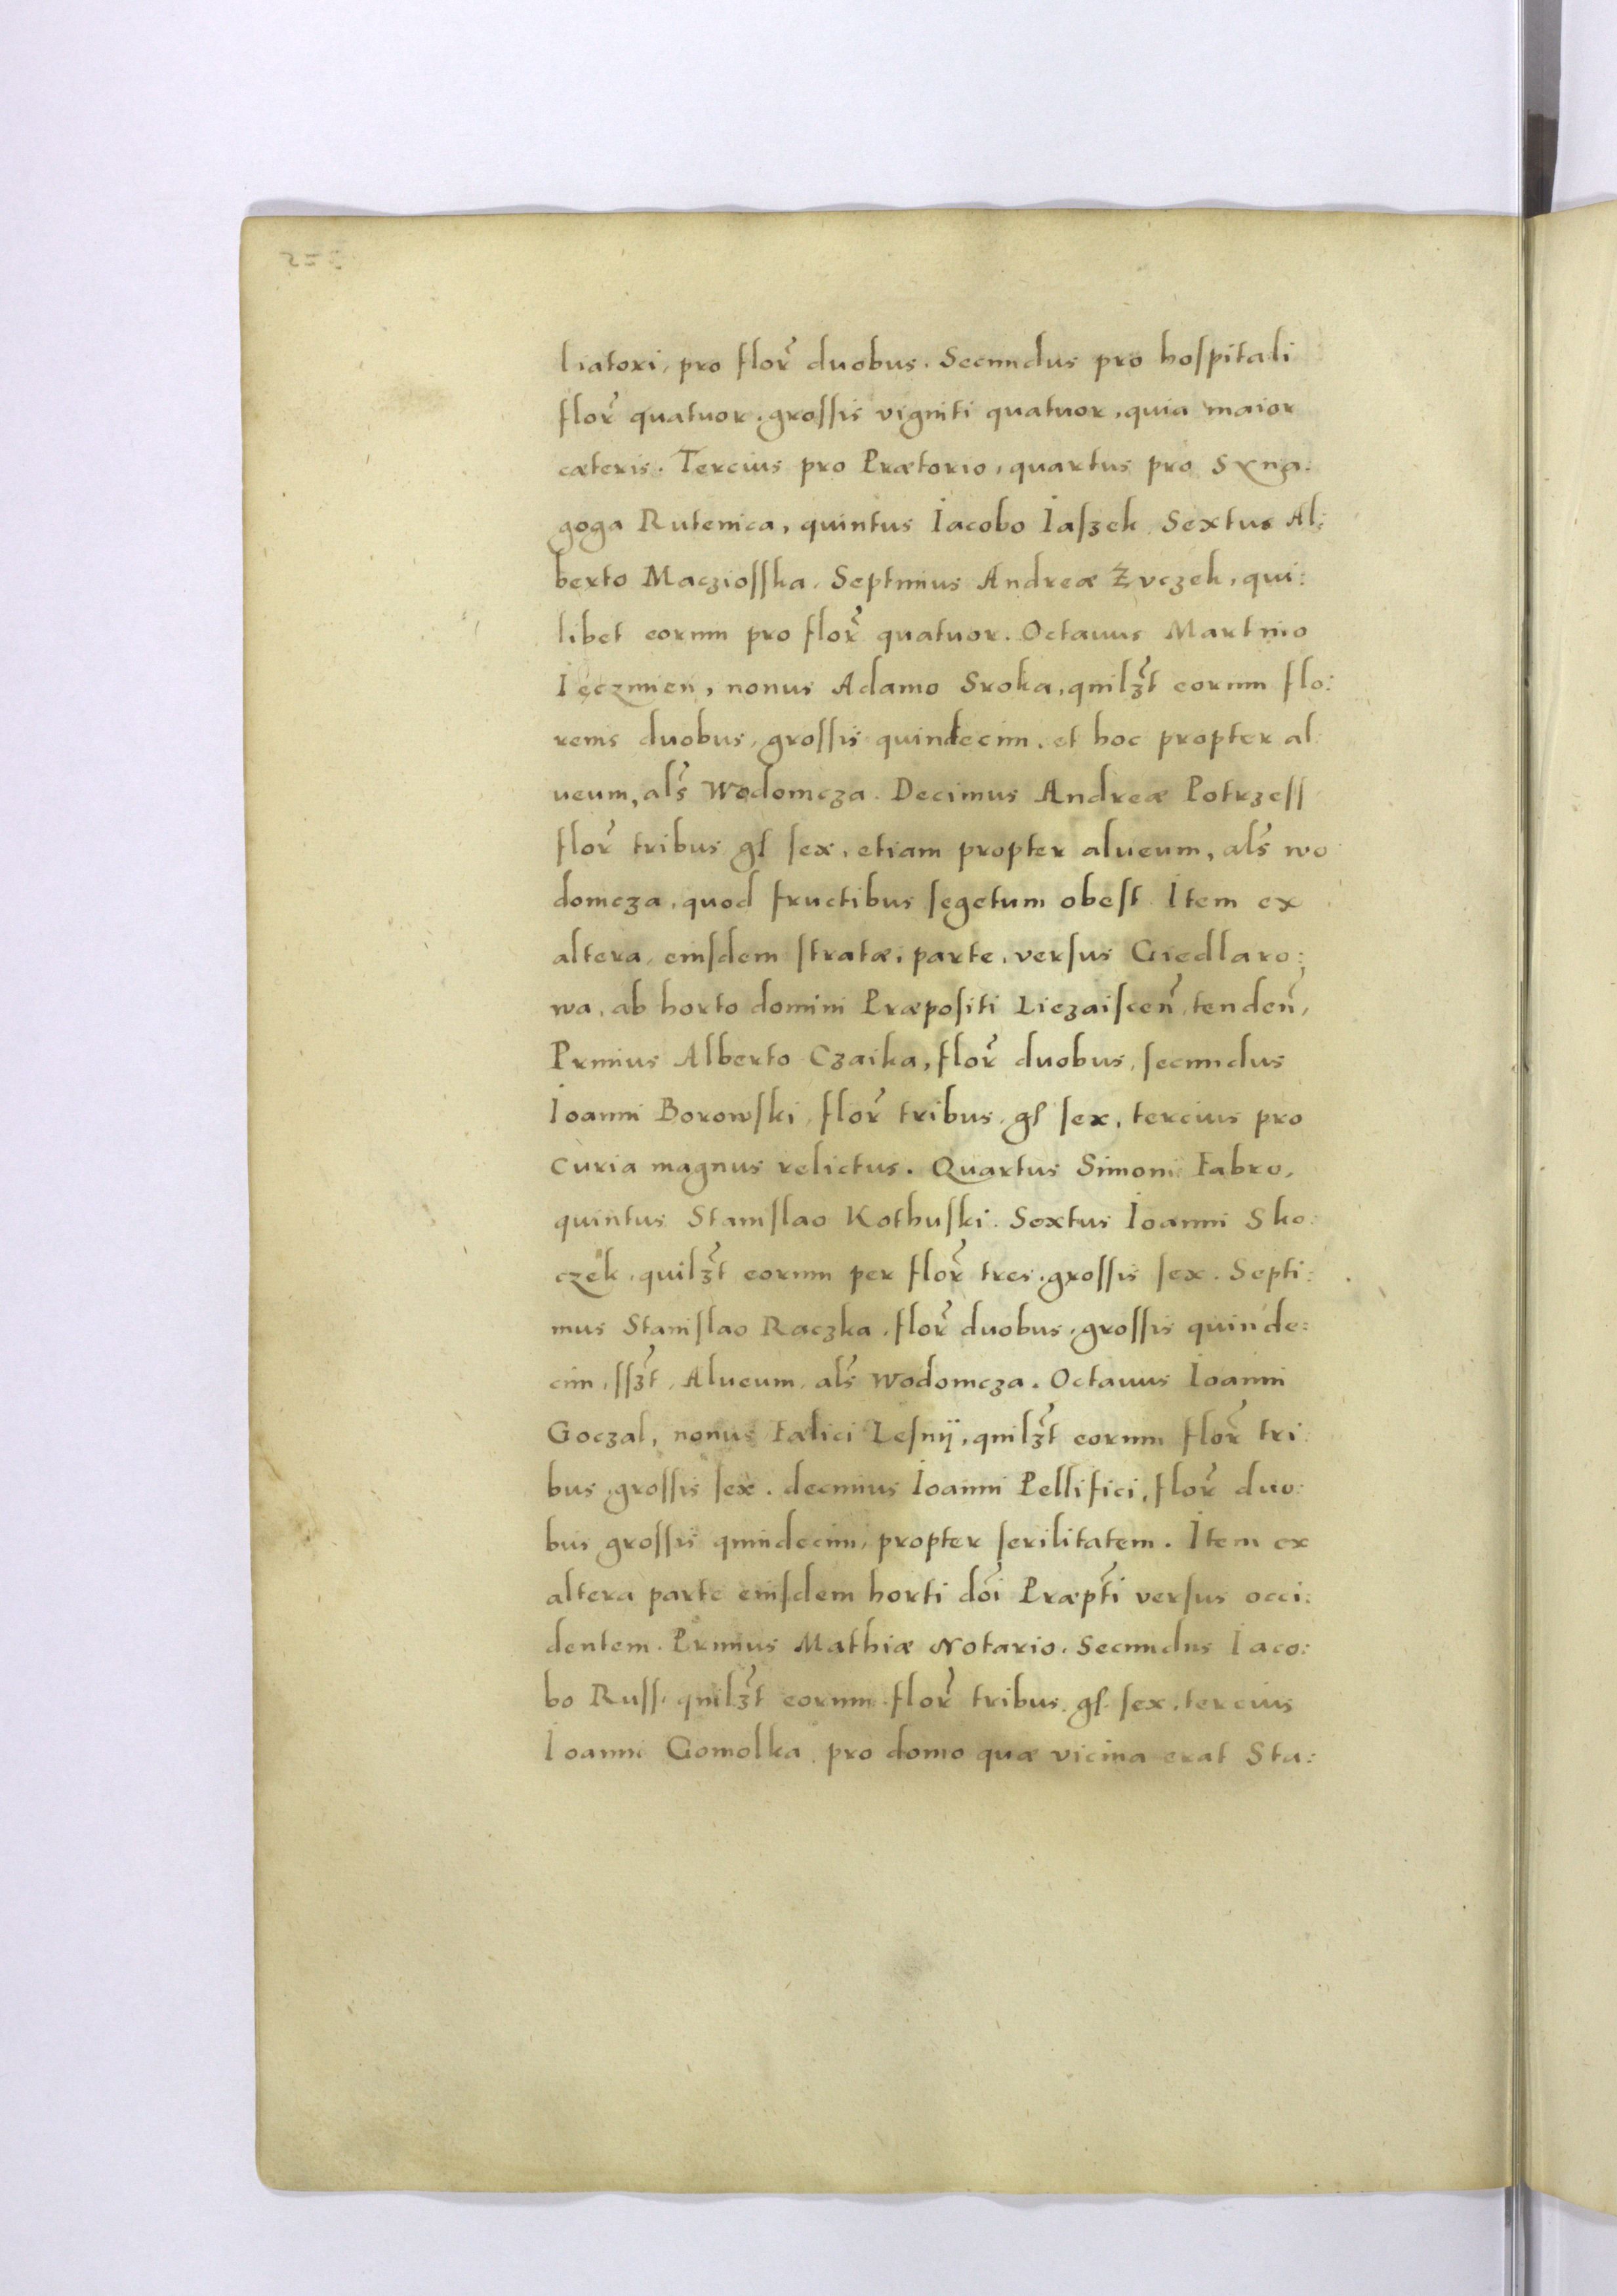 liatori, pro flor̃ duobus. Secundus pro hospitali
flor̃ quatuor, grossis viginti quatuor, quia maior
cæteris. Tercius pro Prætorio, quartus pro Syna:
goga Rutenica, quintus Iacobo Iaszek. Sextus Al:
berto Macziosska. Septimus Andreæ Żvczek, qui:
libet eorum pro flor̃ quatuor. Octauus Martino
Ięczmien, nonus Adamo Sroka, quilꝫt eorum flo:
renis duobus, grossis quindecim, et hoc propter al:
ueum, als̃ Wodomcza. Decimus Andreæ Potrzess
flor̃ tribus gſ sex, etiam propter alueum, als̃ wo:
domcza, quod fructibus segetum obest. Item ex
altera, eiusdem stratæ, parte, versus Giedlaro:
wa, ab horto domini Præpositi Liezaiscen̄, tenden̄,
Primus Alberto Czaika, flor̃ duobus, secundus
Ioanni Borowski, flor̃ tribus, gſ sex, tercius pro
curia magnus relictus. Quartus Simoni Fabro,
quintus Stanislao Kothuski. Sextus Ioanni Sko:
czek, quilꝫt eorum per flor̃ tres, grossis sex. Septi:
mus Stanislao Raczka, flor̃ duobus, grossis quinde:
cim, ssꝫt, Alueum, als̃ Wodomcza. Octauus Ioanni
Goczal, nonus Fælici Lesnÿ, quilꝫt eorum flor̃ tri:
bus, grossis sex. decimus Ioanni Pellifici, flor̃ duo:
bus grossis quindecim, propter serilitatem. Item ex
altera parte eiusdem horti dōi Præpt̃i versus occi:
dentem. Primus Mathiæ Notario. Secundus Iaco:
bo Russ, quilꝫt eorum flor̃ tribus, gſ sex, tercius
Ioanni Gomolka, pro domo quæ vicina erat Sta: